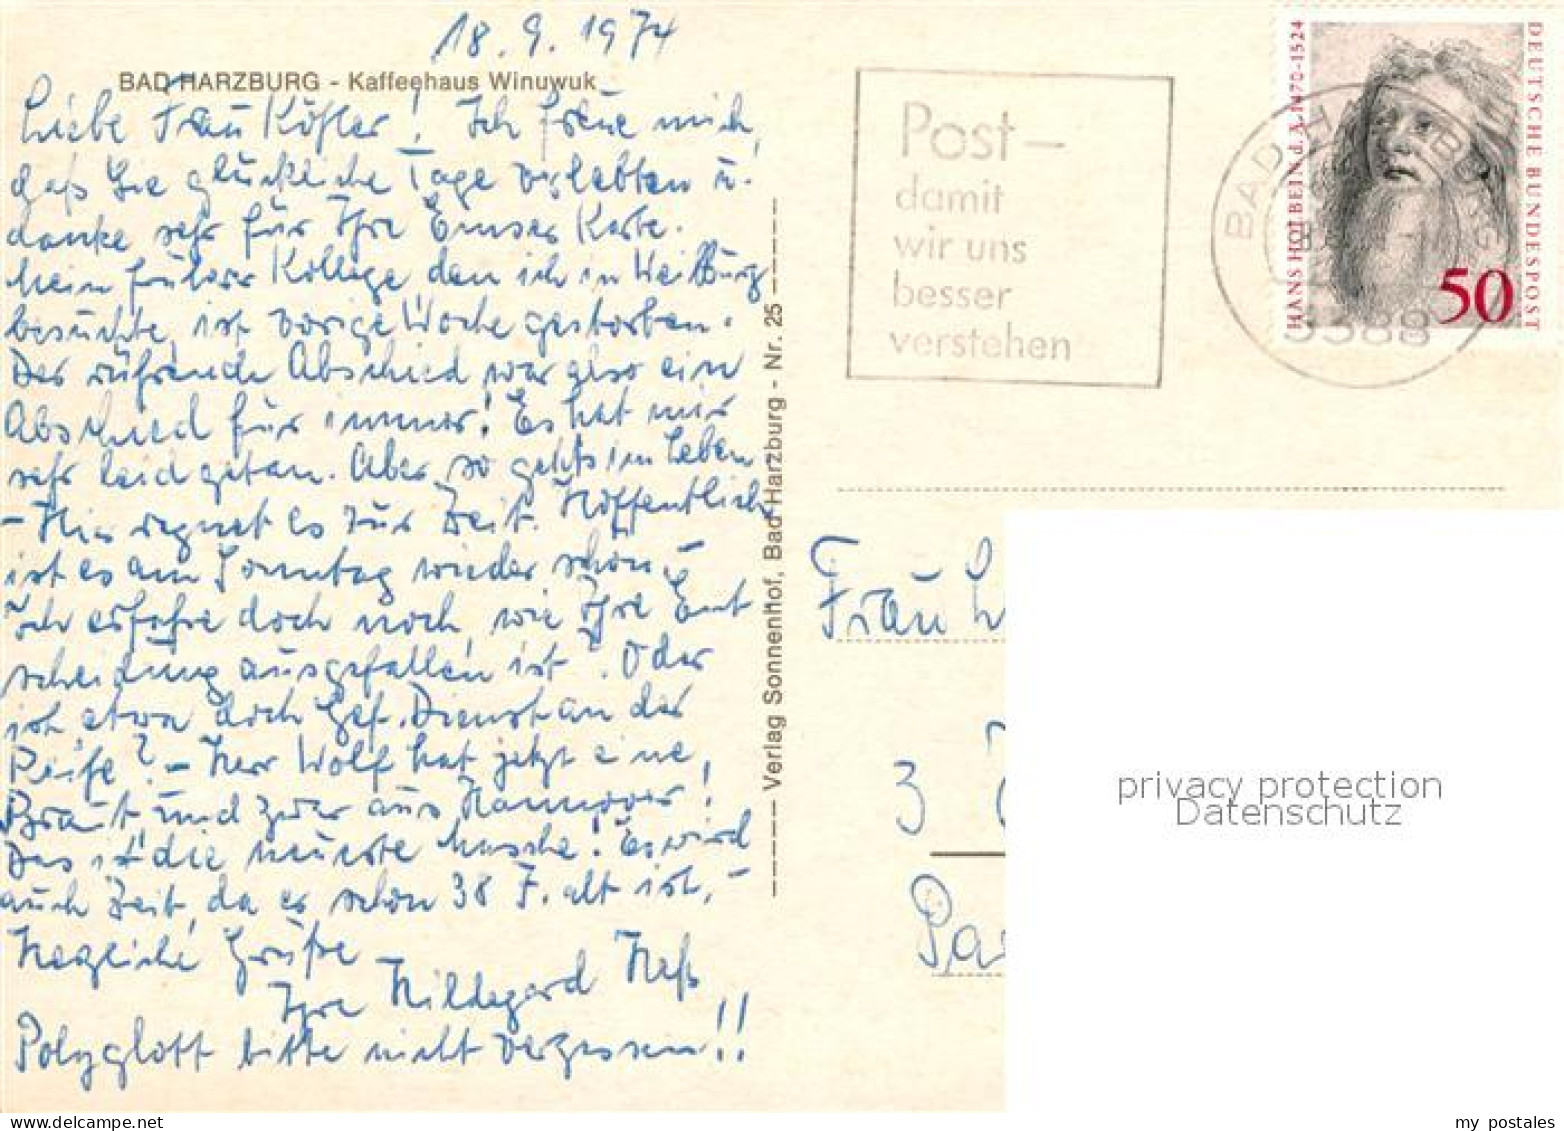 18. 9. 1974
BAD HARZBURG - Kaffeehaus Winuwuk
Liebe Frau Köhler! Ich freue mich,
daß Sie glückliche Tage verlebten u.
danke sehr für Ihre Emser Karte.
Mein früherer Kollege den ich in Weilburg
besuchte, ist vorige Woche gestorben.
Der rührende Abschied war also ein
Abschied für immer! Es hat mir
sehr leid getan. Aber so geht's im Leben
- Hier regnet es zur Zeit. Hoffentlich
ist es am Sonntag wieder schön. -
Ich erfahre doch noch, wie Ihre Ent
scheidung ausgefallen ist? Oder
ist etwa doch Gef. Dienst an der
Reihe? - Herr Wolf hat jetzt eine
Braut und zwar aus Hannover!
Das ist die neueste Masche! Es wird
auch Zeit, da er schon 38 J. alt ist. -
Herzliche Grüße
Ihre Hildegard Heß
Polyglott bitte nicht vergessen!!
Verlag Sonnenhof, Bad Harzburg - Nr. 25
Post-
damit
wir uns
besser
verstehen
BAD HARZBURG
3388
HANS HOLBEIN d. Ä. 1470-1524
DEUTSCHE BUNDESPOST
50
Frau
3
privacy protection
Datenschutz
my postales